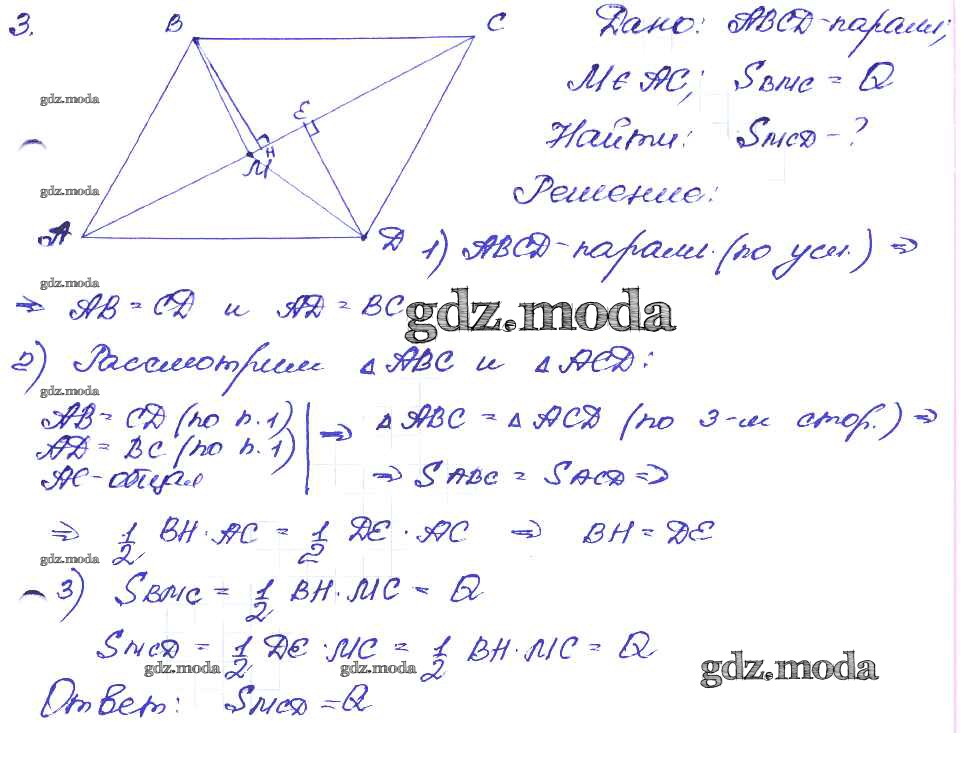 3.
B C
E
H
M
A D
gdz.moda
gdz.moda
gdz.moda
Дано: ABCD-парал.;
M∈AC; SBMC = Q
Найти: SMCD - ?
Решение:
1) ABCD-парал. (по усл.) ⇒
⇒ AB = CD и AD = BC
gdz.moda
2) Рассмотрим △ABC и △ACD:
gdz.moda
AB = CD (по п.1)
AD = BC (по п.1)
AC-общая
⇒ △ABC = △ACD (по 3-м стор.) ⇒
⇒ SABC = SACD ⇒
⇒ 1/2 BH·AC = 1/2 DE·AC ⇒ BH = DE
gdz.moda
3) SBMC = 1/2 BH·MC = Q
SMCD = 1/2 DE·MC = 1/2 BH·MC = Q
gdz.moda gdz.moda gdz.moda
Ответ: SMCD = Q